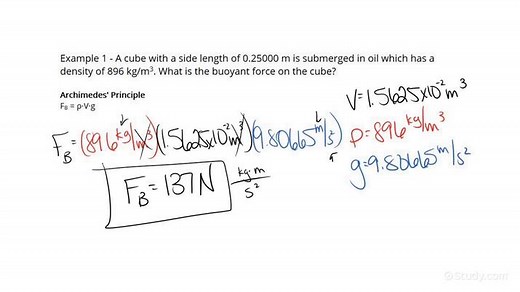 Example 1 - A cube with a side length of 0.25000 m is submerged in oil which has a
density of 896 kg/m³. What is the buoyant force on the cube?
Archimedes' Principle
F_B = ρ·V·g
V=1.5625x10⁻² m³
F_B = (896 kg/m³)(1.5625x10⁻² m³)(9.80665 m/s²)
ρ=896 kg/m³
g=9.80665 m/s²
F_B = 137 N
kg·m/s²
Study.com